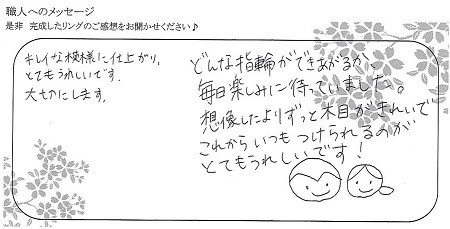 職人へのメッセージ
是非 完成したリングのご感想をお聞かせください♪
キレイな模様に仕上がり、
とてもうれしいです。
大切にします。
どんな指輪ができあがるか、
毎日楽しみに待っていました。
想像したよりずっと木目がきれいで
これからいつもつけられるのが
とてもうれしいです!